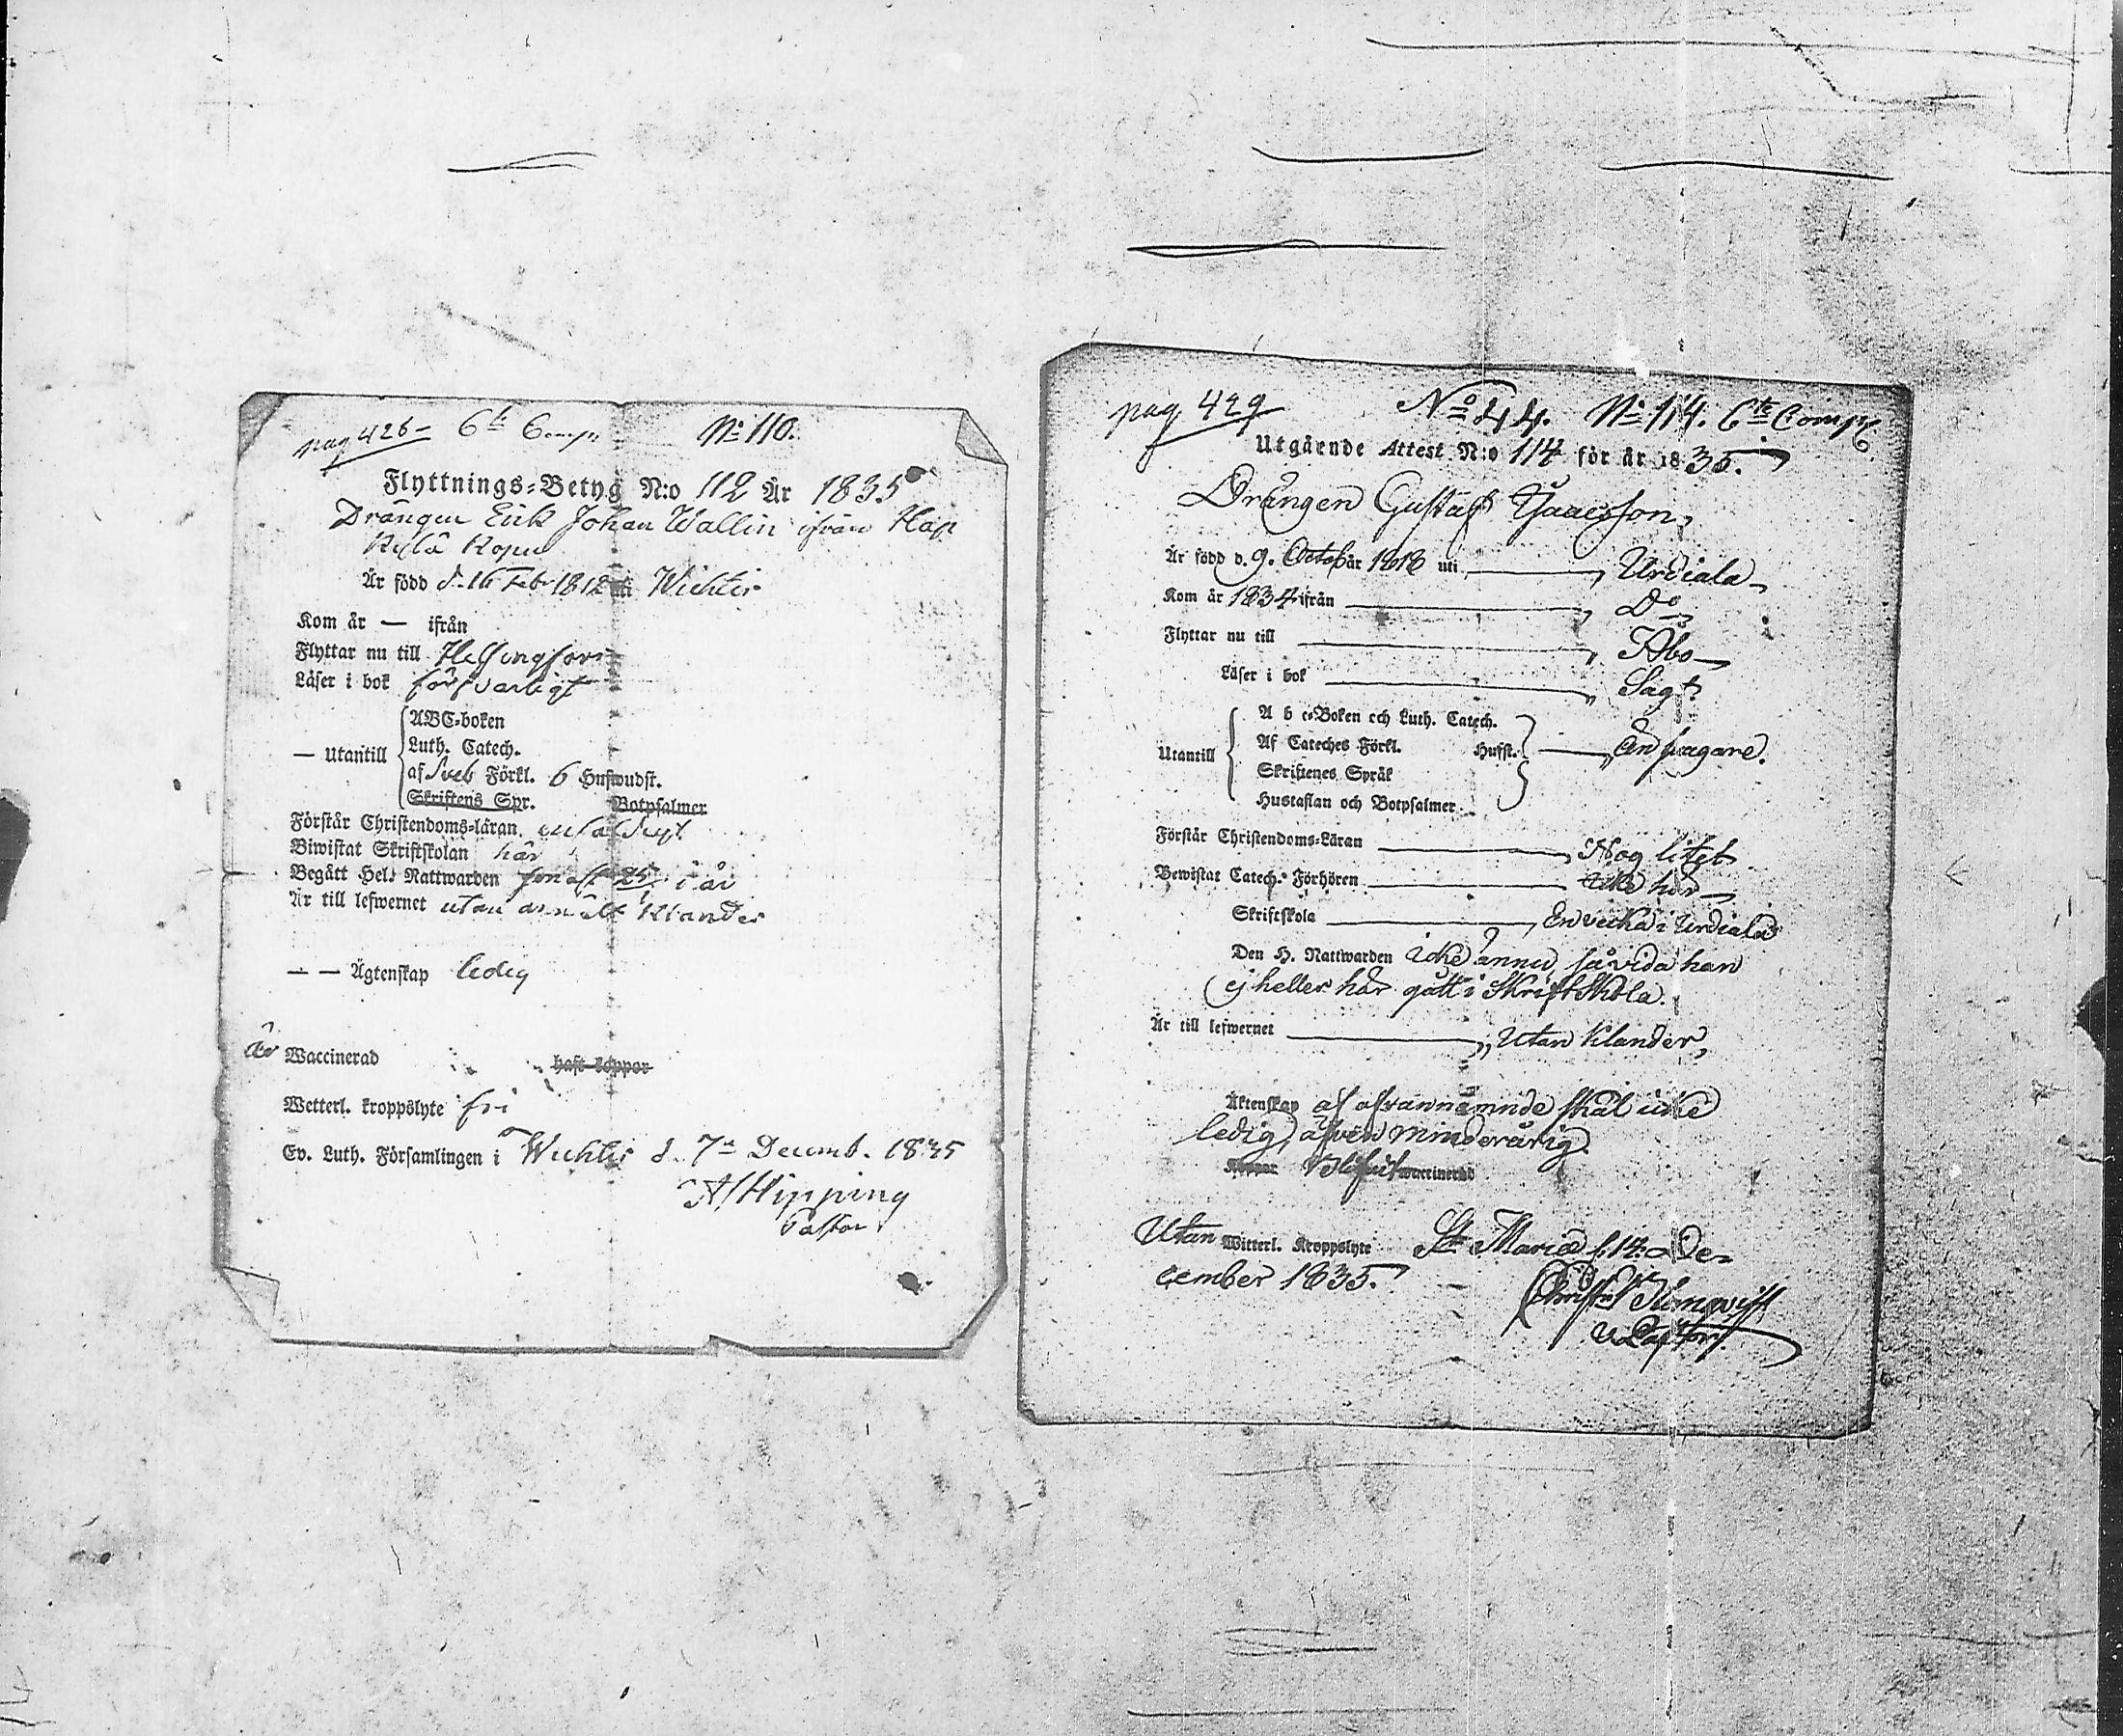 pag 426 6te Comp. No 110.
Flyttnings-Betyg N:o 112 År 1835
Drängen Erik Johan Wallin ifrån Hap
Kylä
Är född d. 16 Feb 1812 uti Wichtis
Kom år — ifrån
Flyttar nu till Helsingfors
Läser i bok försvarligt
— Utantill
ABC-boken
Luth. Catech.
af Sveb Förkl. 6 Hufwudst.
Skriftens Spr. Botpsalmer
Förstår Christendoms-läran
Biwistat Skriftskolan här
Begått Hel. Nattwarden 25 i år
Är till lefwernet utan anmält klander
— — Ägtenskap ledig
Är Waccinerad haft koppor
Wetterl. kroppslyte fri
Ev. Luth. Församlingen i Wichtis d. 7de Decemb. 1835
A Hipping
Pastor
pag. 429 No 44. No 114. 6te Comp.
Utgående Attest N:o 114 för år 1835.
Drängen Gustaf Isaacsson,
Är född d. 9. Octob. år 1818 uti Urdiala
Kom år 1834 ifrån Do
Flyttar nu till Åbo
Läser i bok Sagt.
Utantill
A b c-Boken och Luth. Catech.
Af Cateches Förkl. Hufst. Än svagare.
Skriftenes Språk
Hustaflan och Botpsalmer.
Förstår Christendoms-Läran Nog litet
Bewistat Catech. Förhören Icke här
Skriftskola En vecka i Urdiala
Den H. Nattwarden icke ännu, såvida han
ej heller här gått i Skriftskola.
Är till lefwernet Utan klander,
Äktenskap af ofvannämnde skäl icke
ledig, äfven minderårig.
Koppor Blifvit waccinerad
Utan Witterl. Kroppslyte St Mariæ d. 14. De-
cember 1835.
v. Pastor.